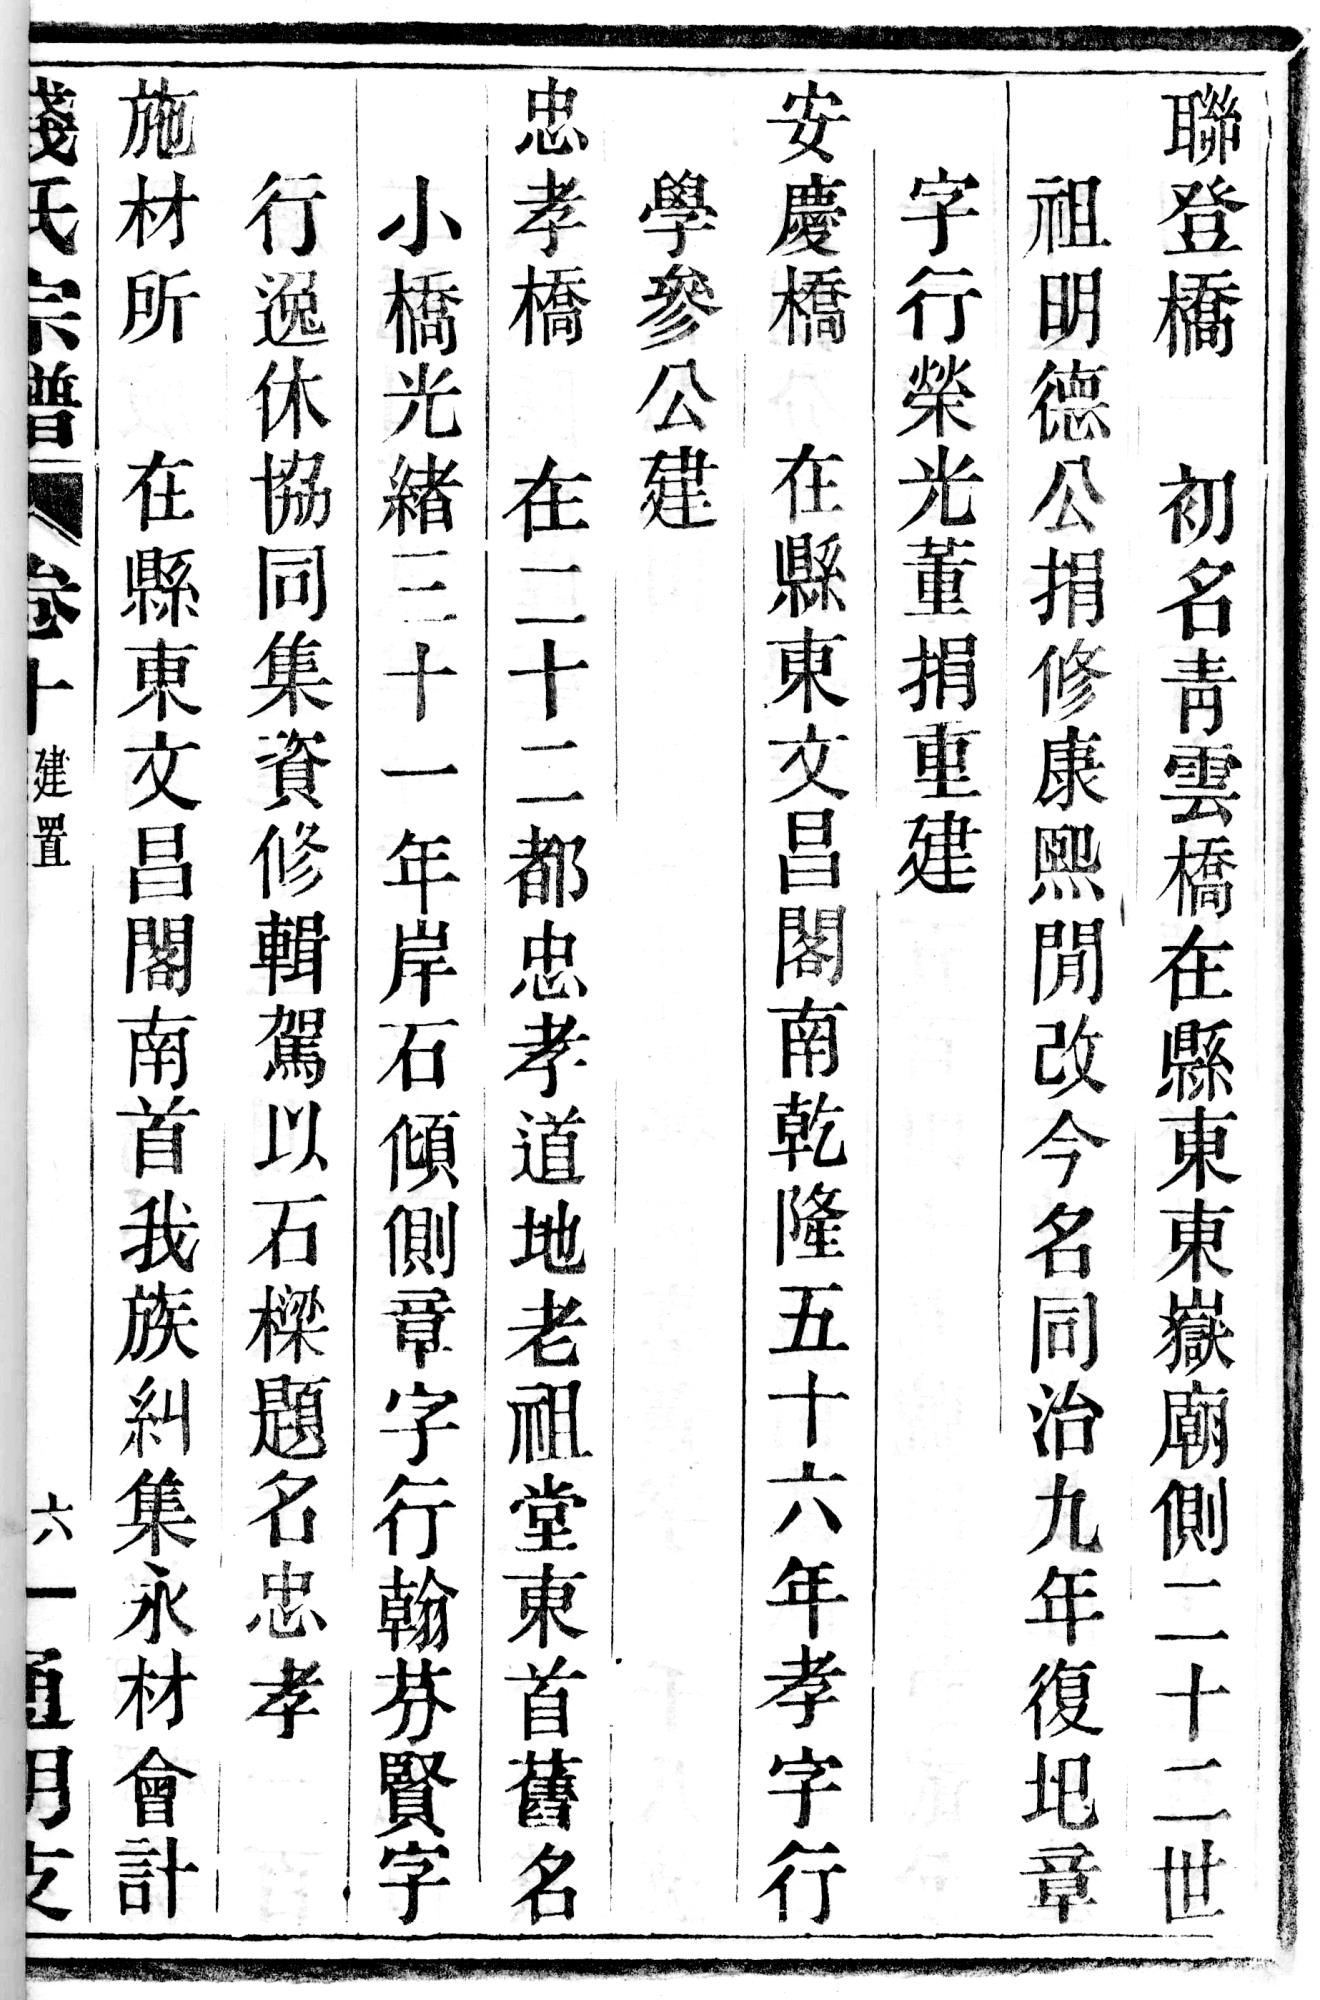 聯登橋　初名青雲橋在縣東東嶽廟側二十二世
祖明德公捐修康熙閒改今名同治九年復圯章
字行榮光董捐重建
安慶橋　在縣東文昌閣南乾隆五十六年孝字行
學參公建
忠孝橋　在二十二都忠孝道地老祖堂東首舊名
小橋光緒三十一年岸石傾側章字行翰芬賢字
行逸休協同集資修輯駕以石樑題名忠孝
施材所　在縣東文昌閣南首我族糾集永材會計
氏宗譜　卷十　建置　六一　通明支